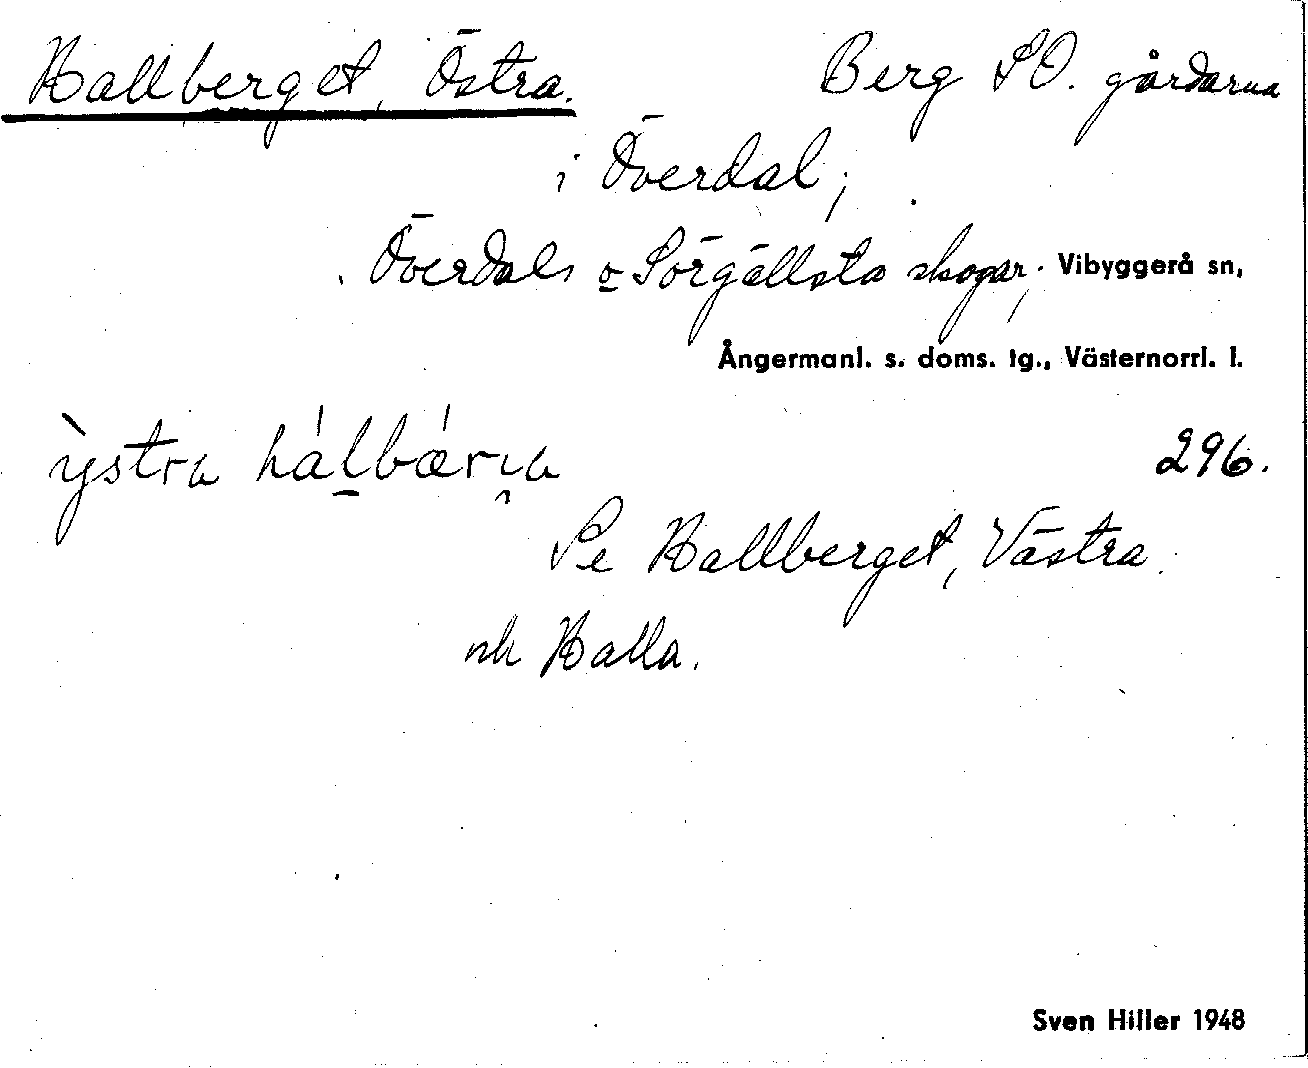 Hallberget, Östra. Berg SO. gårdarna
i Överdal;
Överdals o Sörgällsta skogar; Vibyggerå sn,
Ångermanl. s. doms. tg., Västernorrl. l.
ỳstra hálbærɪa 296.
Se Hallberget, Västra.
och Halla.
Sven Hiller 1948